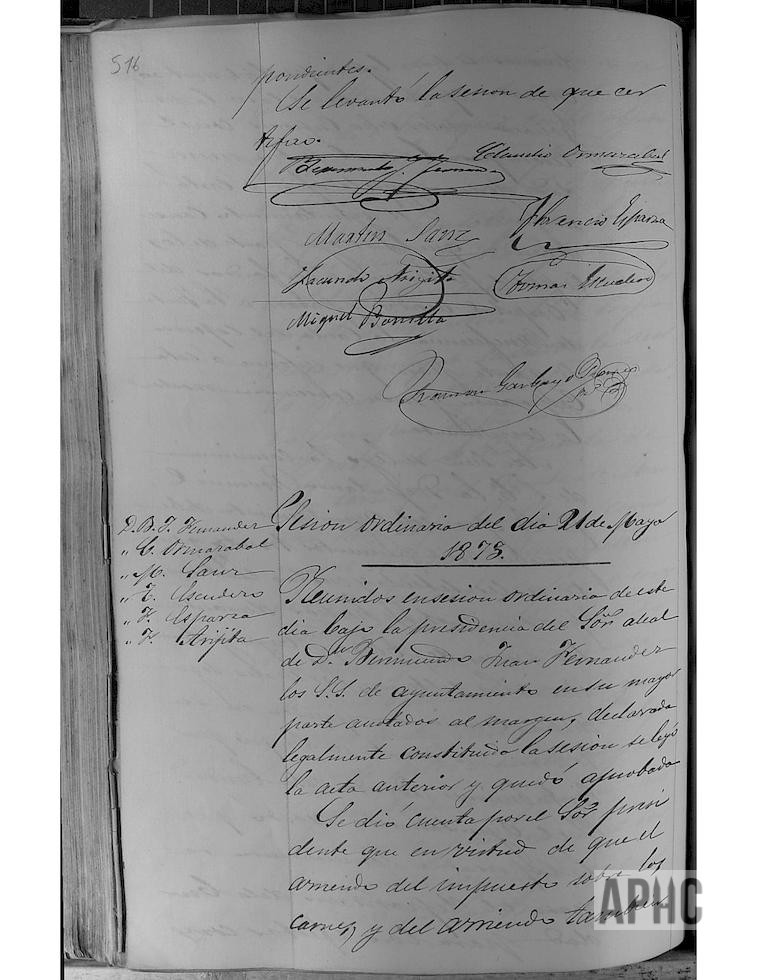 516
pondientes.
Se levantó la sesion de que cer
tifico.
Claudio Ormazabal
Martin Sanz
Florencio Esparza
Facundo Arijita
Tomas Escudero
Miguel Bonilla
Roman Garbayo
D. B. J. Fernandez
" C. Ormazabal
" M. Sanz
" T. Escudero
" F. Esparza
" F. Arijita
Sesion ordinaria del dia 21 de Mayo
1873.
Reunidos en sesion ordinaria de este
dia bajo la presidencia del Sõr alcal
de Dn Bermundo Juan Fernandez
los S.S. de ayuntamiento en su mayor
parte anotados al margen, declarada
legalmente constituida la sesion se leyó
la acta anterior y quedó aprobada
Se dió cuenta por el Sõr presi
dente que en virtud de que el
arriendo del impuesto sobre las
carnes, y del arriendo tambien
APHC